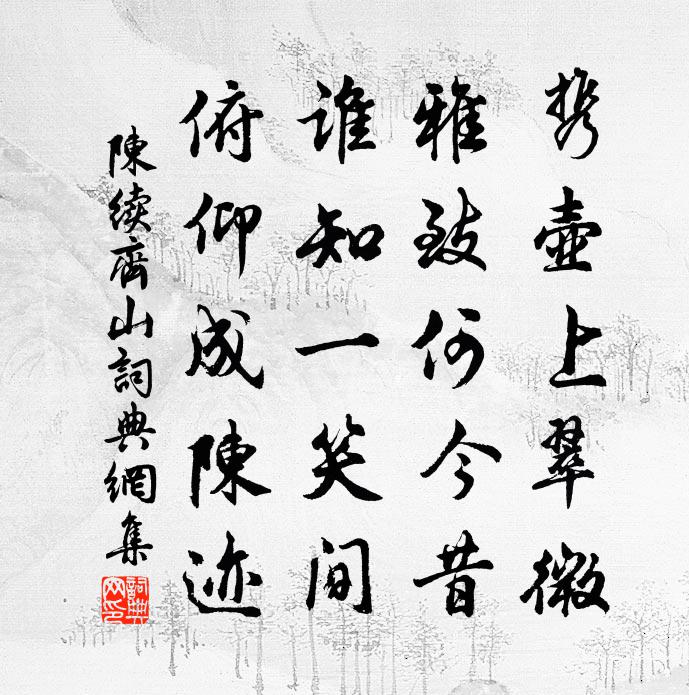 携壺上翠微
雅致何今昔
谁知一笑间
俯仰成陳迹
陳续齊山詞典網集
詞典